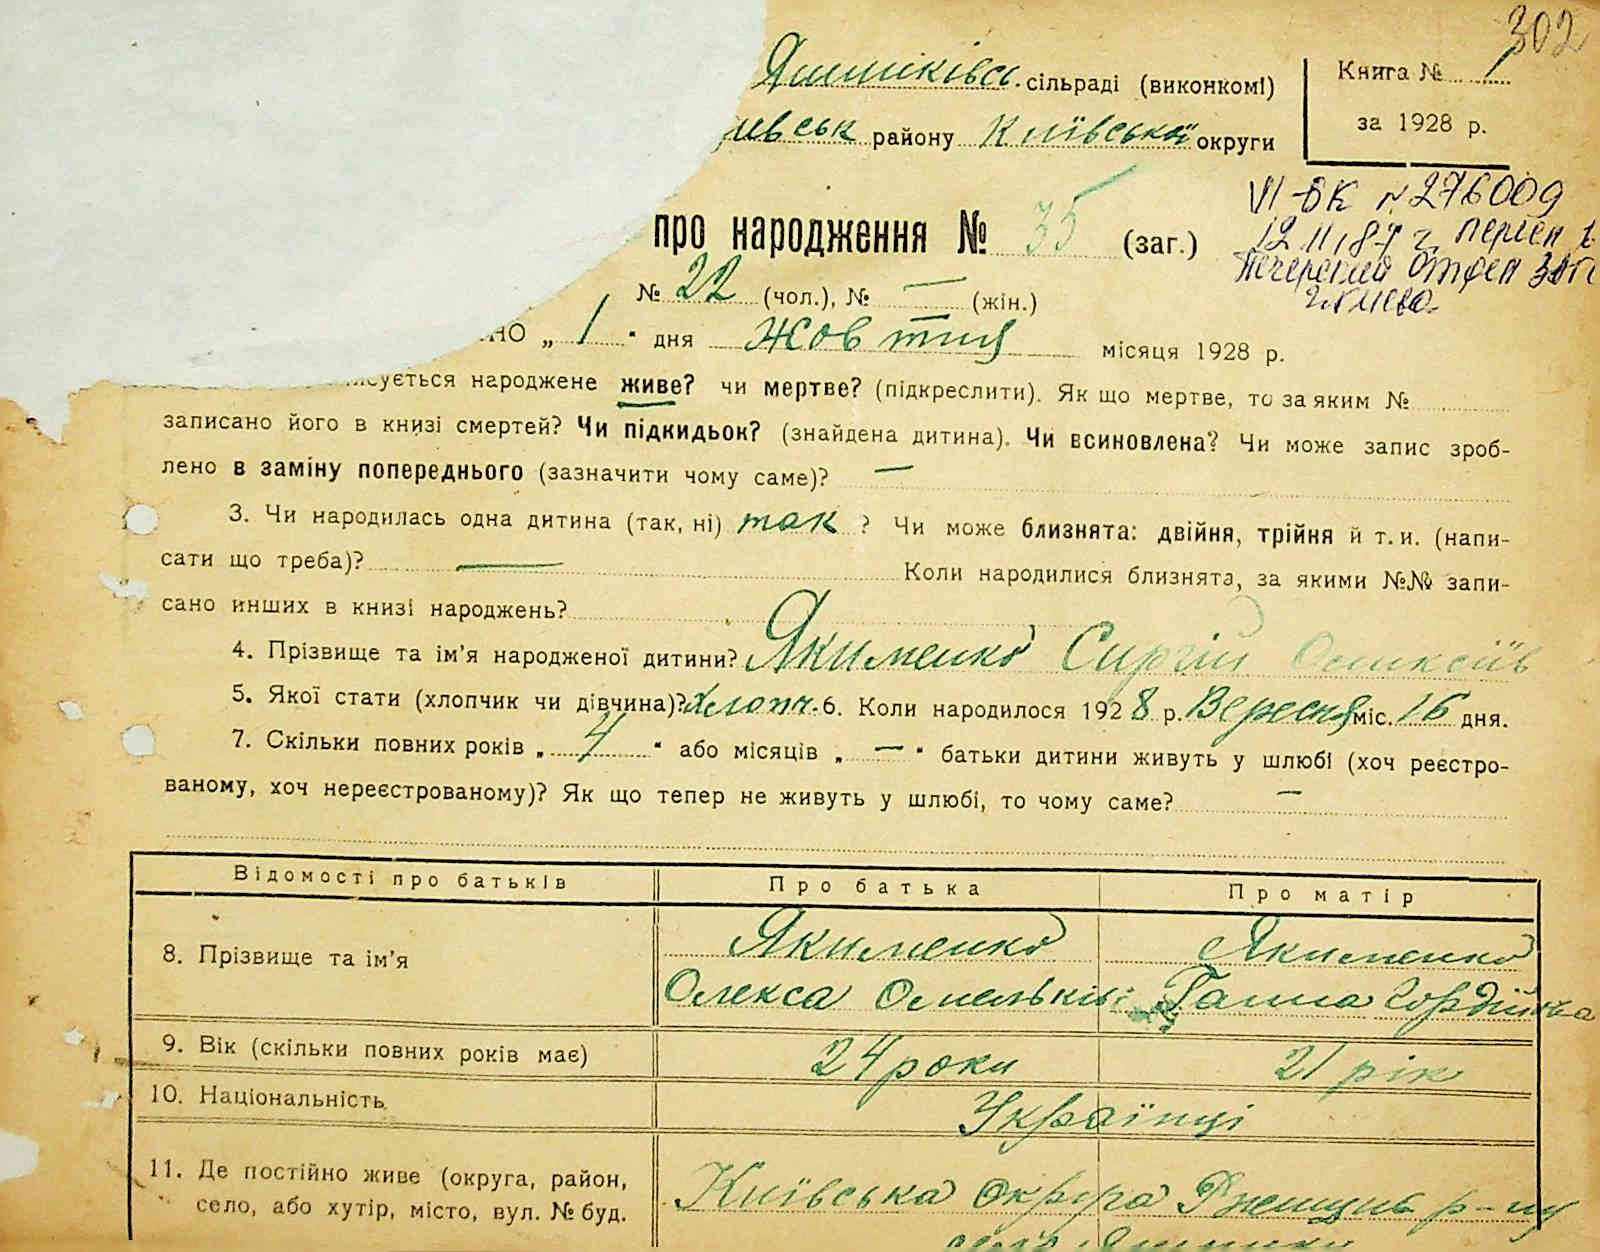 302
Яшниківсь. сільраді (виконкомі)
Книга № 1
району Київської округи
за 1928 р.
про народження № 35 (заг.)
VI-БК № 276009
№ 22 (чол.), № — (жін.)
но „ 1 " дня Жовтня місяця 1928 р.
сується народжене живе? чи мертве? (підкреслити). Як що мертве, то за яким №
записано його в книзі смертей? Чи підкидьок? (знайдена дитина). Чи всиновлена? Чи може запис зроб-
лено в заміну попереднього (зазначити чому саме)? —
3. Чи народилась одна дитина (так, ні) так ? Чи може близнята: двійня, трійня й т. и. (напи-
сати що треба)? — Коли народилися близнята, за якими №№ запи-
сано инших в книзі народжень?
4. Прізвище та ім'я народженої дитини? Якименко Сиргій Оликсіїв
5. Якої стати (хлопчик чи дівчина)? Хлопч. 6. Коли народилося 1928 р. Вересня міс. 16 дня.
7. Скільки повних років „ 4 " або місяців „ — " батьки дитини живуть у шлюбі (хоч реєстро-
ваному, хоч нереєстрованому)? Як що тепер не живуть у шлюбі, то чому саме? —
Відомості про батьків Про батька Про матір
8. Прізвище та ім'я
Якименко Якименко
Олекса Омельків Ганна Гордіївна
9. Вік (скільки повних років має) 24 роки 21 рік
10. Національність Українці
11. Де постійно живе (округа, район,
село, або хутір, місто, вул. № буд.
Київська округа Ржищів р-ну
село Яшники